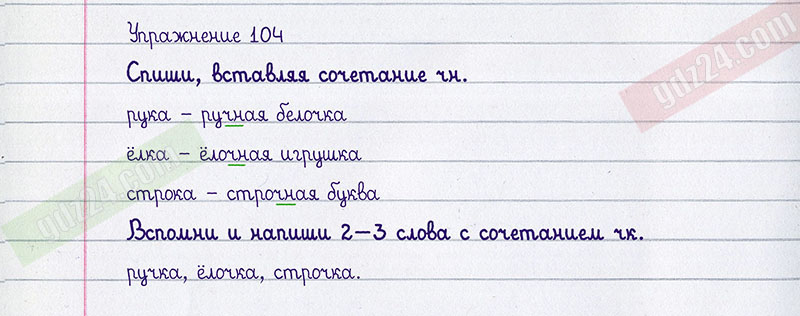 Упражнение 104
Спиши, вставляя сочетание чн.
рука – ручная белочка
ёлка – ёлочная игрушка
строка – строчная буква
Вспомни и напиши 2–3 слова с сочетанием чк.
ручка, ёлочка, строчка.
gdz24.com
gdz24.com